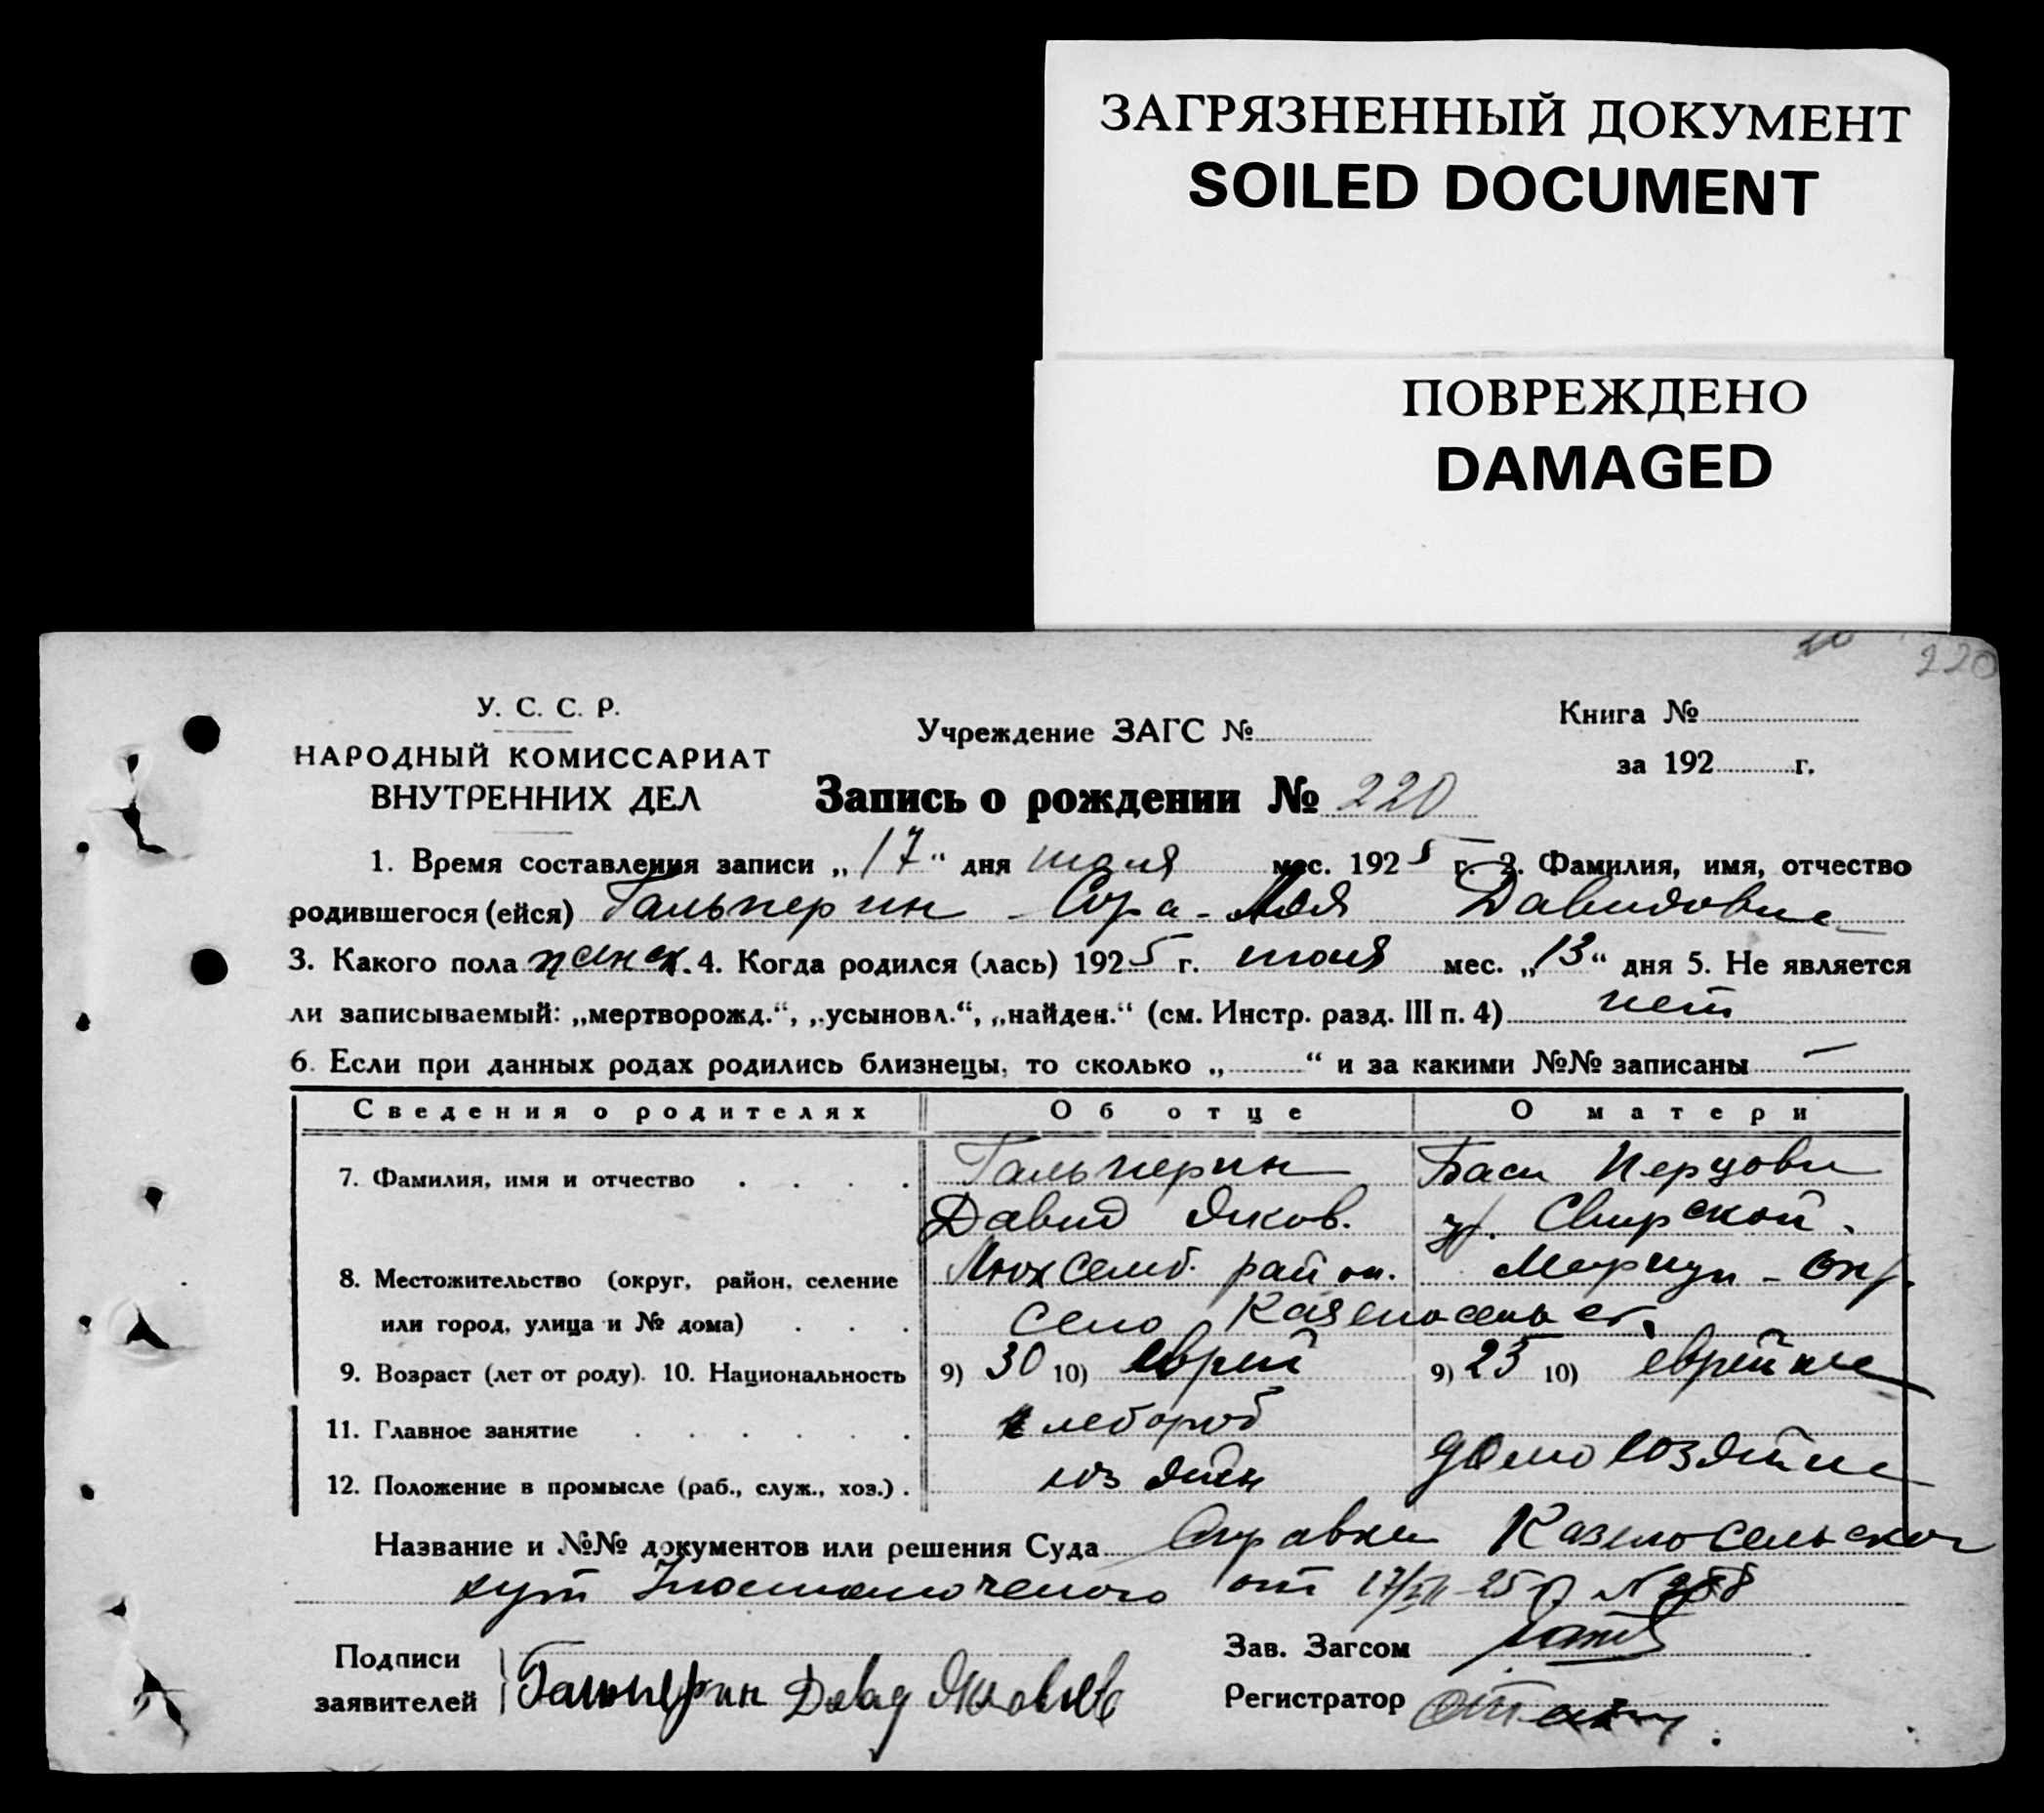 ЗАГРЯЗНЕННЫЙ ДОКУМЕНТ
SOILED DOCUMENT
ПОВРЕЖДЕНО
DAMAGED
220
У. С. С. Р.
НАРОДНЫЙ КОМИССАРИАТ
ВНУТРЕННИХ ДЕЛ
Учреждение ЗАГС №
Книга №
за 192 г.
Запись о рождении № 220
1. Время составления записи „17“ дня июля мес. 1925 г. 2. Фамилия, имя, отчество
родившегося (ейся) Гальперин - Сора - Давидовна
3. Какого пола женск. 4. Когда родился (лась) 1925 г. июля мес. „13“ дня 5. Не является
ли записываемый: „мертворожд.“, „усыновл.“, „найден.“ (см. Инстр. разд. III п. 4) нет
6. Если при данных родах родились близнецы, то сколько „ “ и за какими №№ записаны —
Сведения о родителях Об отце О матери
7. Фамилия, имя и отчество Гальперин Бася Перцовн
Давид Яков. ур. Свирской.
8. Местожительство (округ, район, селение Люксемб. район. Мариуп - окр.
или город, улица и № дома) село Казеносельск.
9. Возраст (лет от роду). 10. Национальность 9) 30 10) еврей 9) 25 10) еврейка
11. Главное занятие хлебороб
12. Положение в промысле (раб., служ., хоз.) хозяин домохозяйка
Название и №№ документов или решения Суда Справка Казеносельского
от 17/VII 25 г №
Подписи
заявителей Гальперин Давид Яковлев
Зав. Загсом
Регистратор